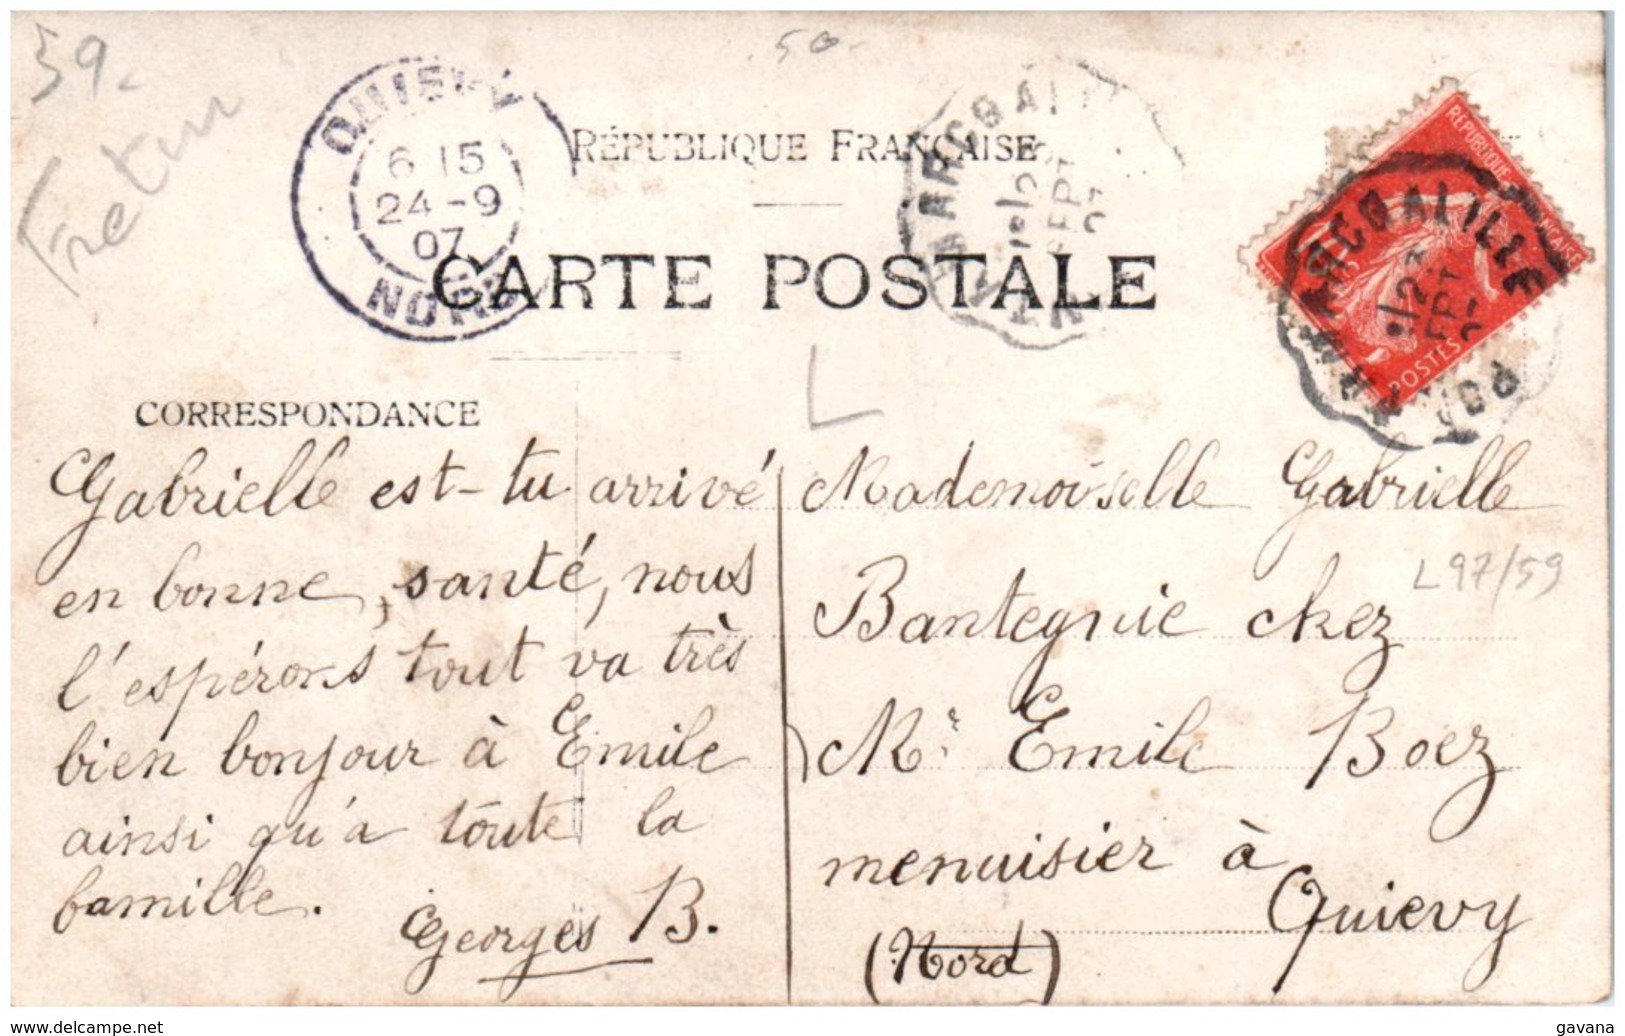 59.
Fretin
.50-
QUIEVY
6 15
24-9
07
NORD
RÉPUBLIQUE FRANÇAISE
CARTE POSTALE
MARCQ A LILLE
23
SEPT
07
RÉPUBLIQUE FRANÇAISE
POSTES
L
CORRESPONDANCE
Gabrielle est-tu arrivé
en bonne, santé, nous
l'espérons tout va très
bien bonjour à Emile
ainsi qu'a toute la
famille.
Georges B.
Mademoiselle Gabrielle
L97/59
Bantegnie chez
Mr Emile Boez
menuisier à
Quievy
(Nord)
www.delcampe.net
gavana